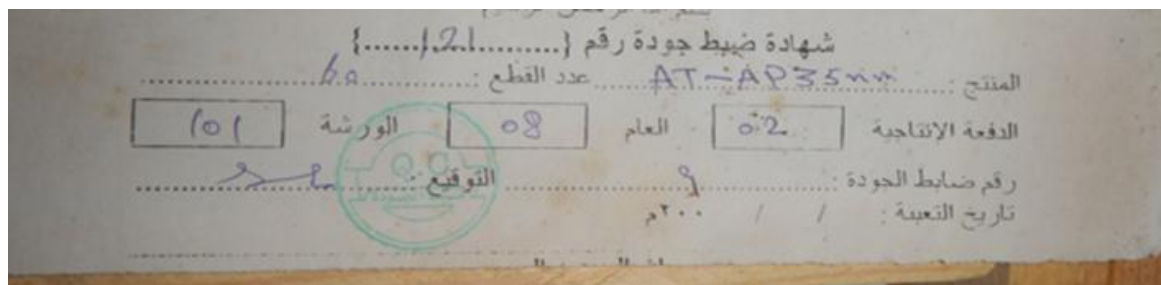 شهادة ضبط جودة رقم {......121......}
المنتج : AT-AP35mm عدد القطع : 60
الدفعة الإنتاجية 02 العام 08 الورشة 101
رقم ضابط الجودة : 9 التوقيع :
تاريخ التعبئة : / / ٢٠٠م